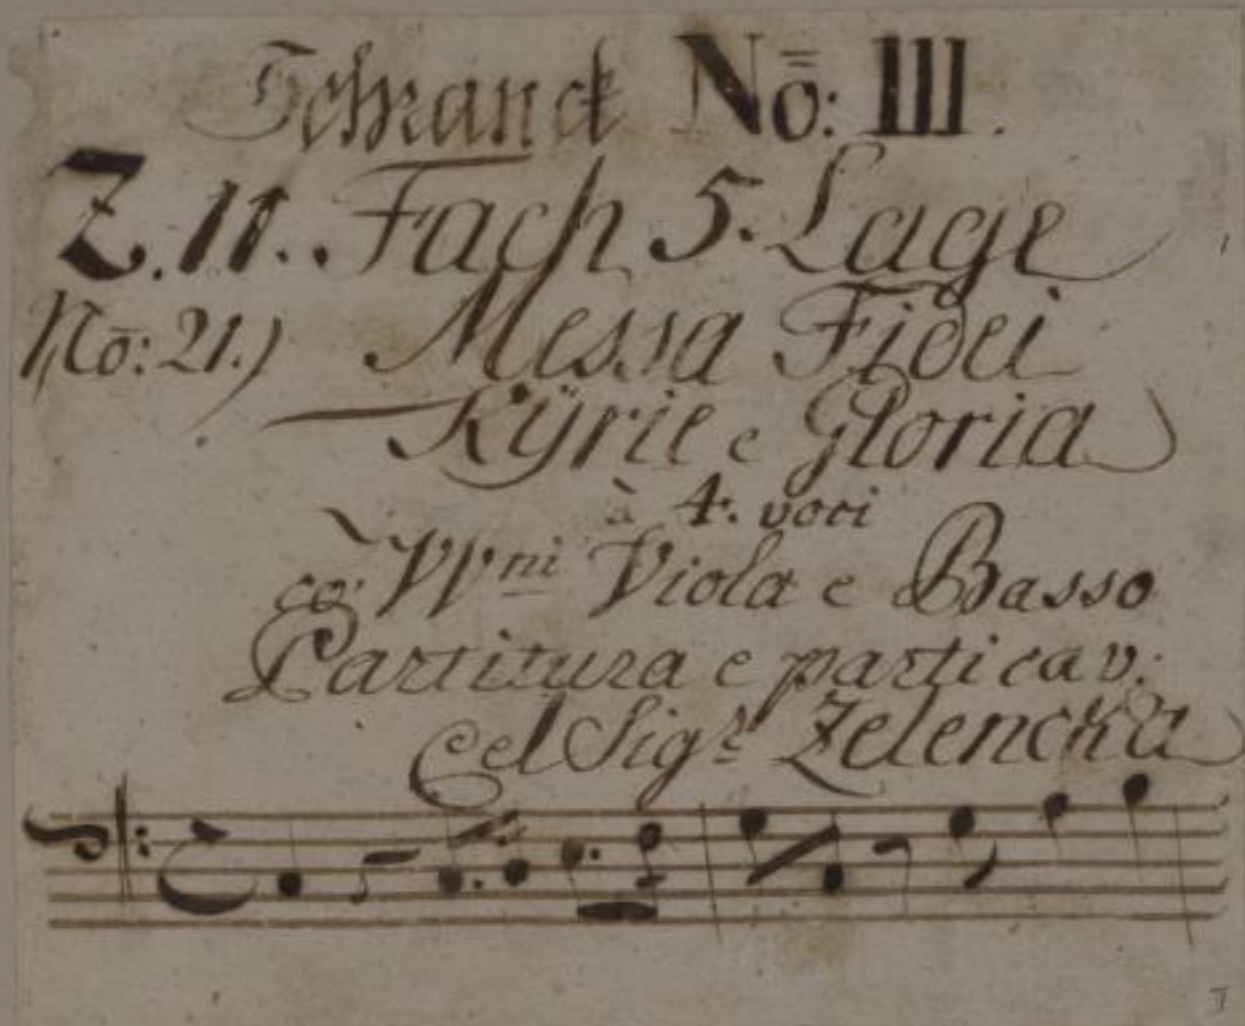 Schranck Nō: III.
Z. 11. Fach 5. Lage
Nō: 21.) Messa Fidei
Kÿrie e Gloria
à 4. voci
co VVni Viola e Basso
Partitura e parti cav:
Del Sigr Zelencka